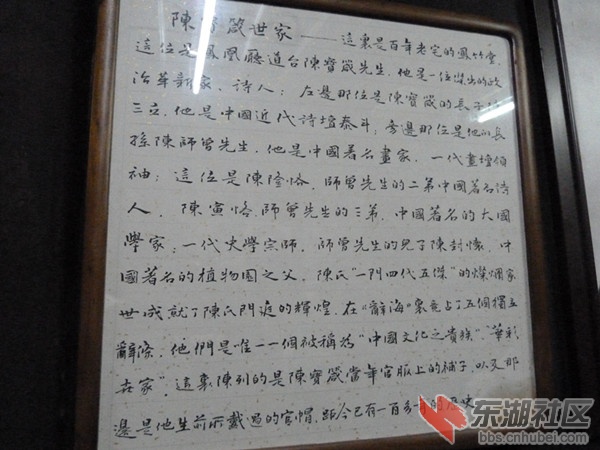 陳寳箴世家——這裏是百年老宅的鳳竹堂
這位是鳳凰廳道台陳寳箴先生,他是一位傑出的政
治革新家、詩人;左邊那位是陳寳箴的長子
三立,他是中國近代詩壇泰斗;旁邊那位是他的長
孫陳師曾先生,他是中國著名畫家,一代畫壇領
袖;這位是陳隆恪,師曾先生的二弟中國著名詩
人,陳寅恪師曾先生的三弟,中國著名的大國
學家,一代史學宗師,師曾先生的兒子陳封懷,中
國著名的植物園之父,陳氏"一門四代五傑"的燦爛家
世成就了陳氏門庭的輝煌,在"辭海"裏竟占了五個獨立
辭條,他們是唯一一個被稱為"中國文化之貴族""華彩
世家",這裏陳列的是陳寳箴當年官服上的補子,以及那
邊是他生前所戴過的官帽,距今已有一百多年的歷史
东湖社区
bbs.cnhubei.com